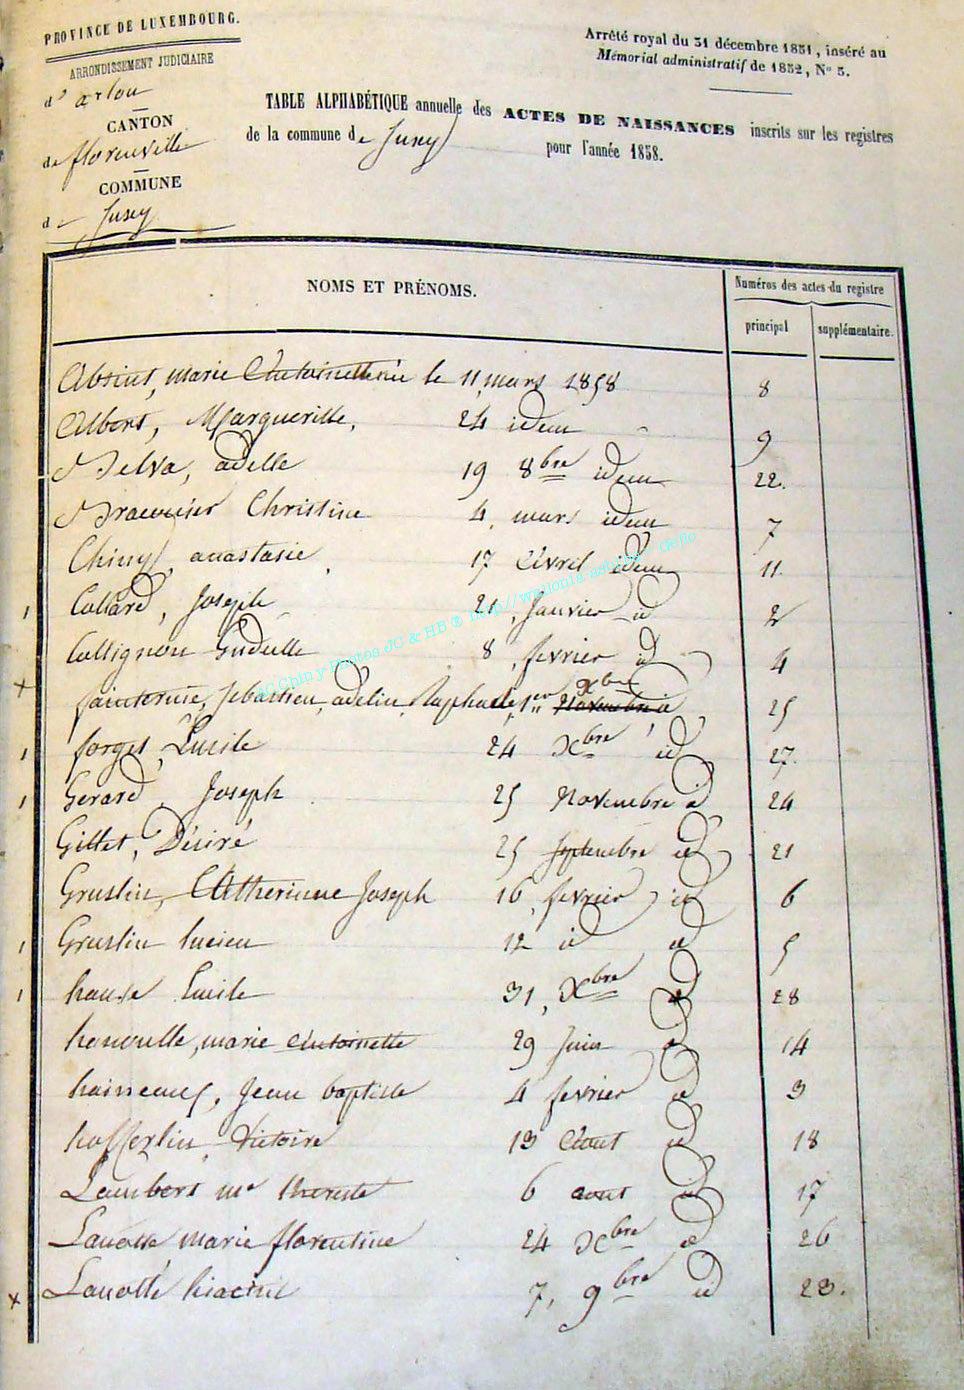 PROVINCE DE LUXEMBOURG.
ARRONDISSEMENT JUDICIAIRE
d'arlon
CANTON
de florenville
COMMUNE
de Jusey
Arrêté royal du 31 décembre 1851, inséré au
Mémorial administratif de 1852, N° 3.
TABLE ALPHABÉTIQUE annuelle des ACTES DE NAISSANCES inscrits sur les registres
de la commune de Jusey pour l'année 1858.
NOMS ET PRÉNOMS.
Numéros des actes du registre
principal
supplémentaire.
marie le 11, mars 1858 8
Albert, Margueritte, 24 idem 9
Belva, adelle 19 8bre idem 22.
Christine 4, mars idem 7
Chiny, anastasie, 17 Avril idem 11.
Collard, Joseph 21, Janvier id 2
Collignon Gudulle 8, fevrier id 4
fainternie, Sebastien, adelin, Raphael, 1er Novembre id Xbre 25
forget, Lucile 24 Xbre id 27.
Gerard, Joseph 25 Novembre id 24
Gillet, Désiré 25 Septembre id 21
Gruslin, Catherinne Joseph 16, fevrier id 6
Gruslin lucien 12 id id 5
Lucile 31, Xbre id 28
hanoulle, marie Antoinette 29 Juin id 14
Jean baptiste 4 fevrier id 3
Victoire 13 Aout id 18
Lambert me therese 6 aout id 17
Lanotte marie florentine 24 Xbre id 26
Lanotte hiacint 7, 9bre id 23.
AC Chiny Photos JC & HB ® http//wallonia.asbl